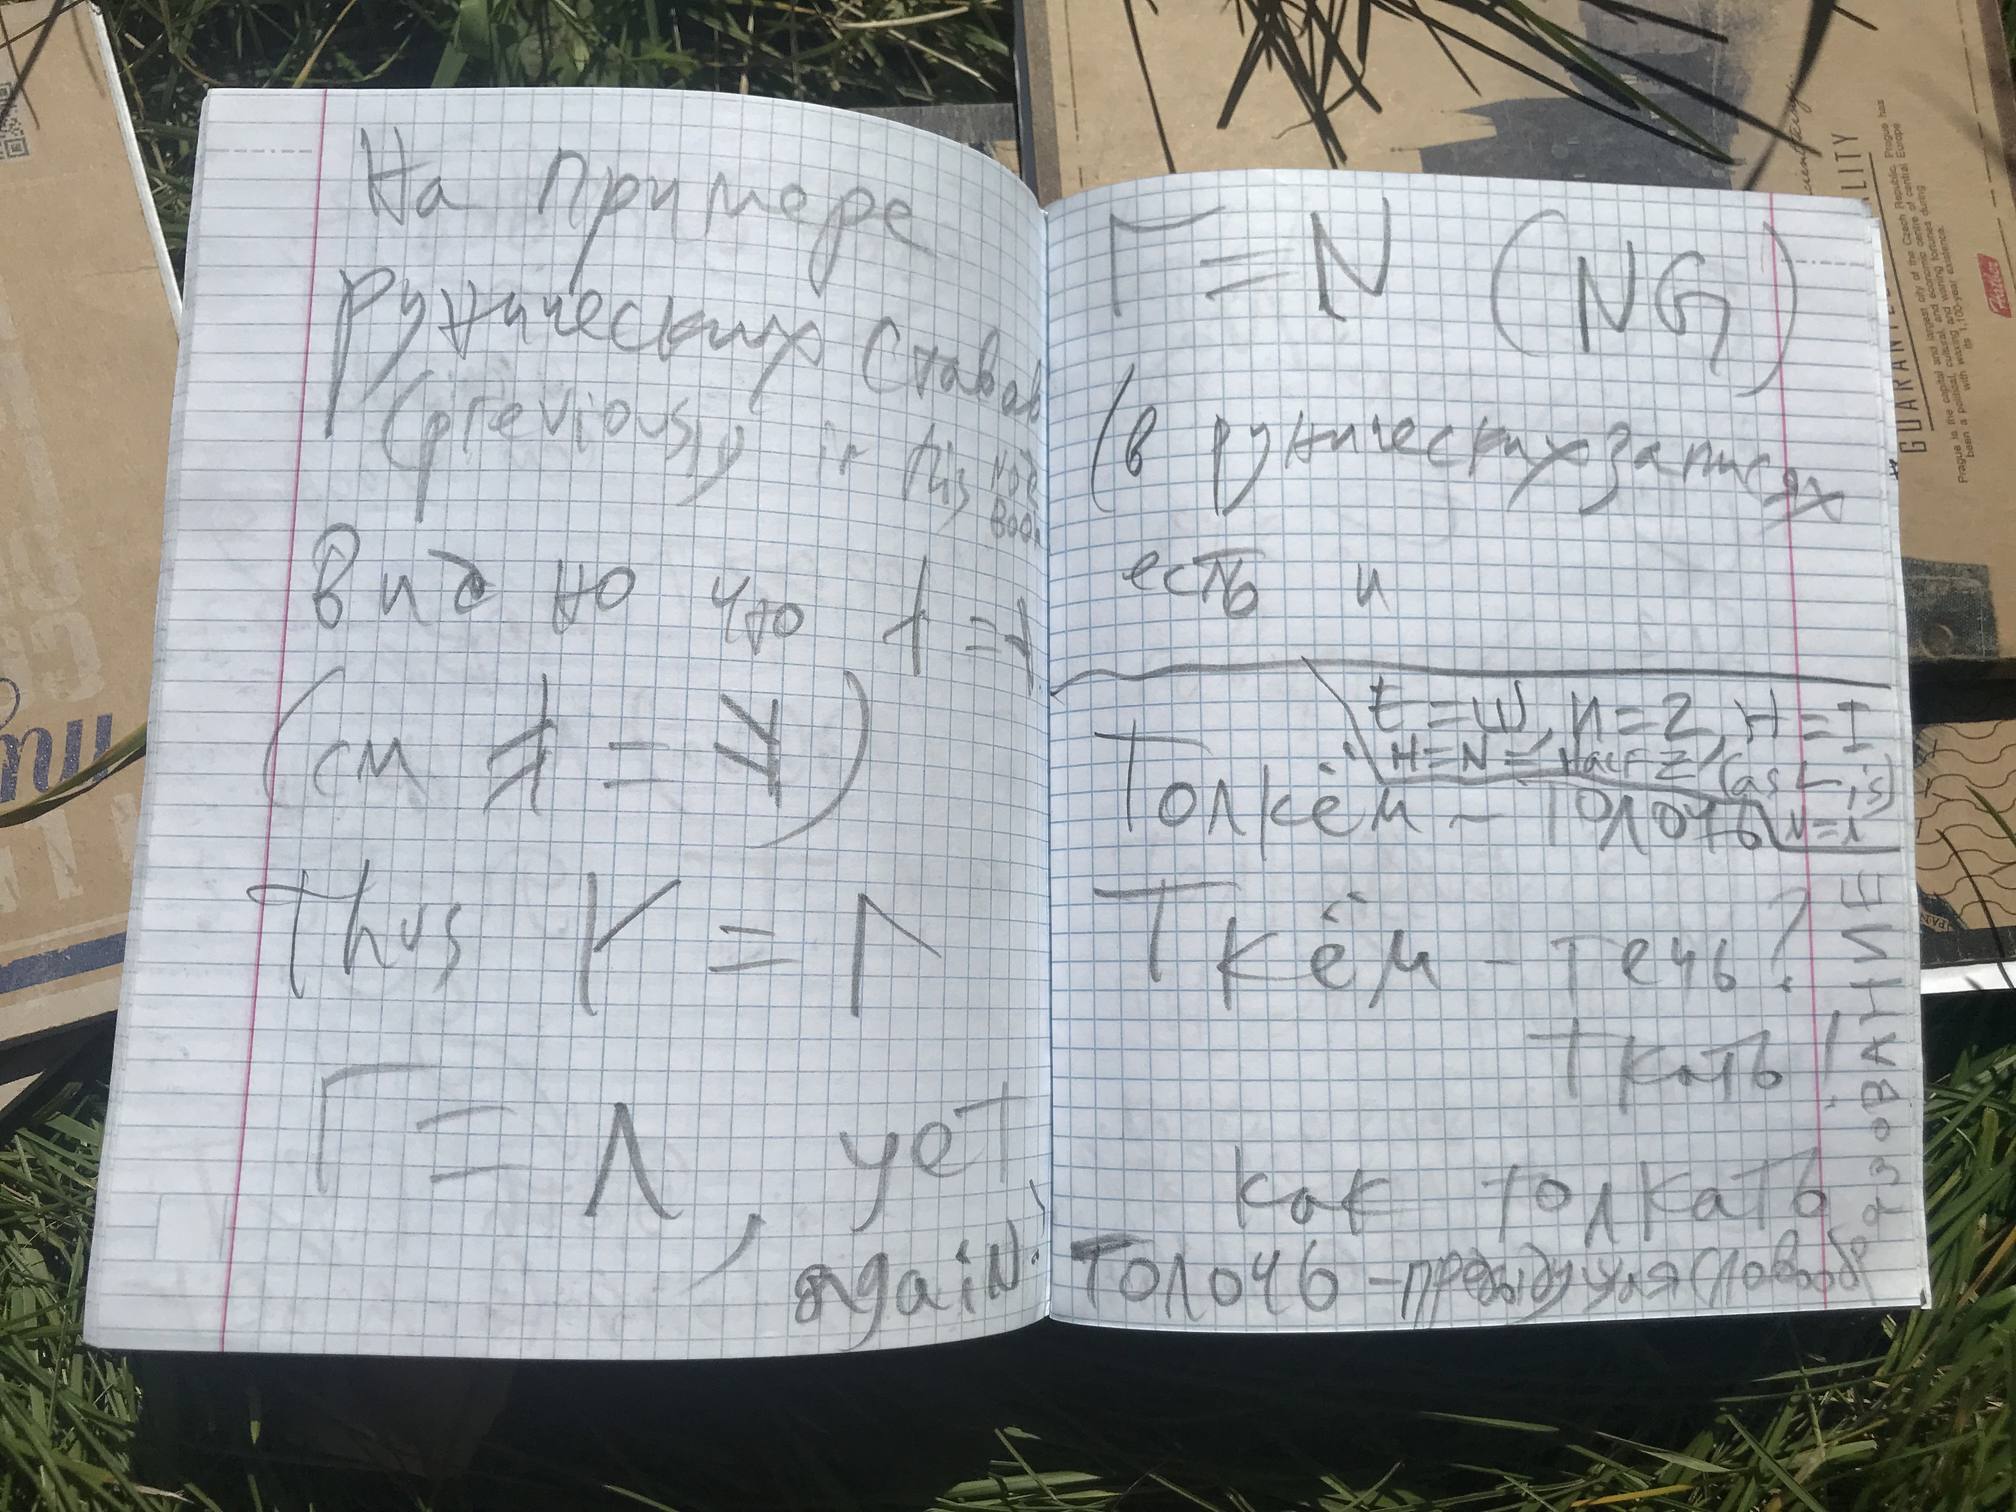 На примере
рунических ставов
(previously in this note
book
видно что ᚽ = ᚽ
(см ǂ = )
Thus Y = Г
Г = Λ, yet
again:
Г = N (NG)
(в рунических записях
есть и
t = W, И = Z, H = I
H = N = half Z (as L is)
И = i
Толкём - толочь
Ткём - течь?
Ткать!
как толкать
Толочь - предыдущая словообр
азование
GUARANTE ALITY
Prague is the capital and largest city of the Czech Republic. Prague has
been a political, cultural, and economic centre of central Europe
with waxing and waning fortunes during
its 1,100-year existence.